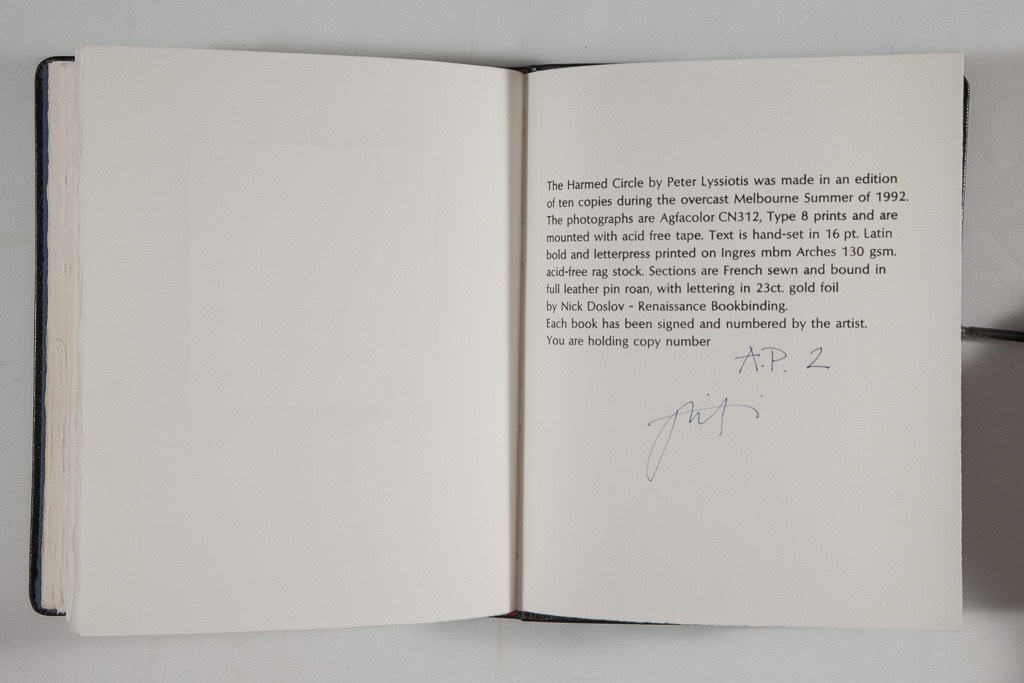 The Harmed Circle by Peter Lyssiotis was made in an edition
of ten copies during the overcast Melbourne Summer of 1992.
The photographs are Agfacolor CN312, Type 8 prints and are
mounted with acid free tape. Text is hand-set in 16 pt. Latin
bold and letterpress printed on Ingres mbm Arches 130 gsm.
acid-free rag stock. Sections are French sewn and bound in
full leather pin roan, with lettering in 23ct. gold foil
by Nick Doslov - Renaissance Bookbinding.
Each book has been signed and numbered by the artist.
You are holding copy number
A.P. 2